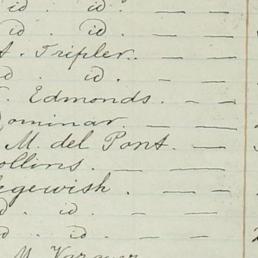 id . id . — —
id . id . — —
Tripler.. — —
d . id . — —
. Edmonds. — —
ominar. — —
M. del Pont. —
ollins. — —
egewish. — —
d . id . — —
d . id . — —
M. Vargas